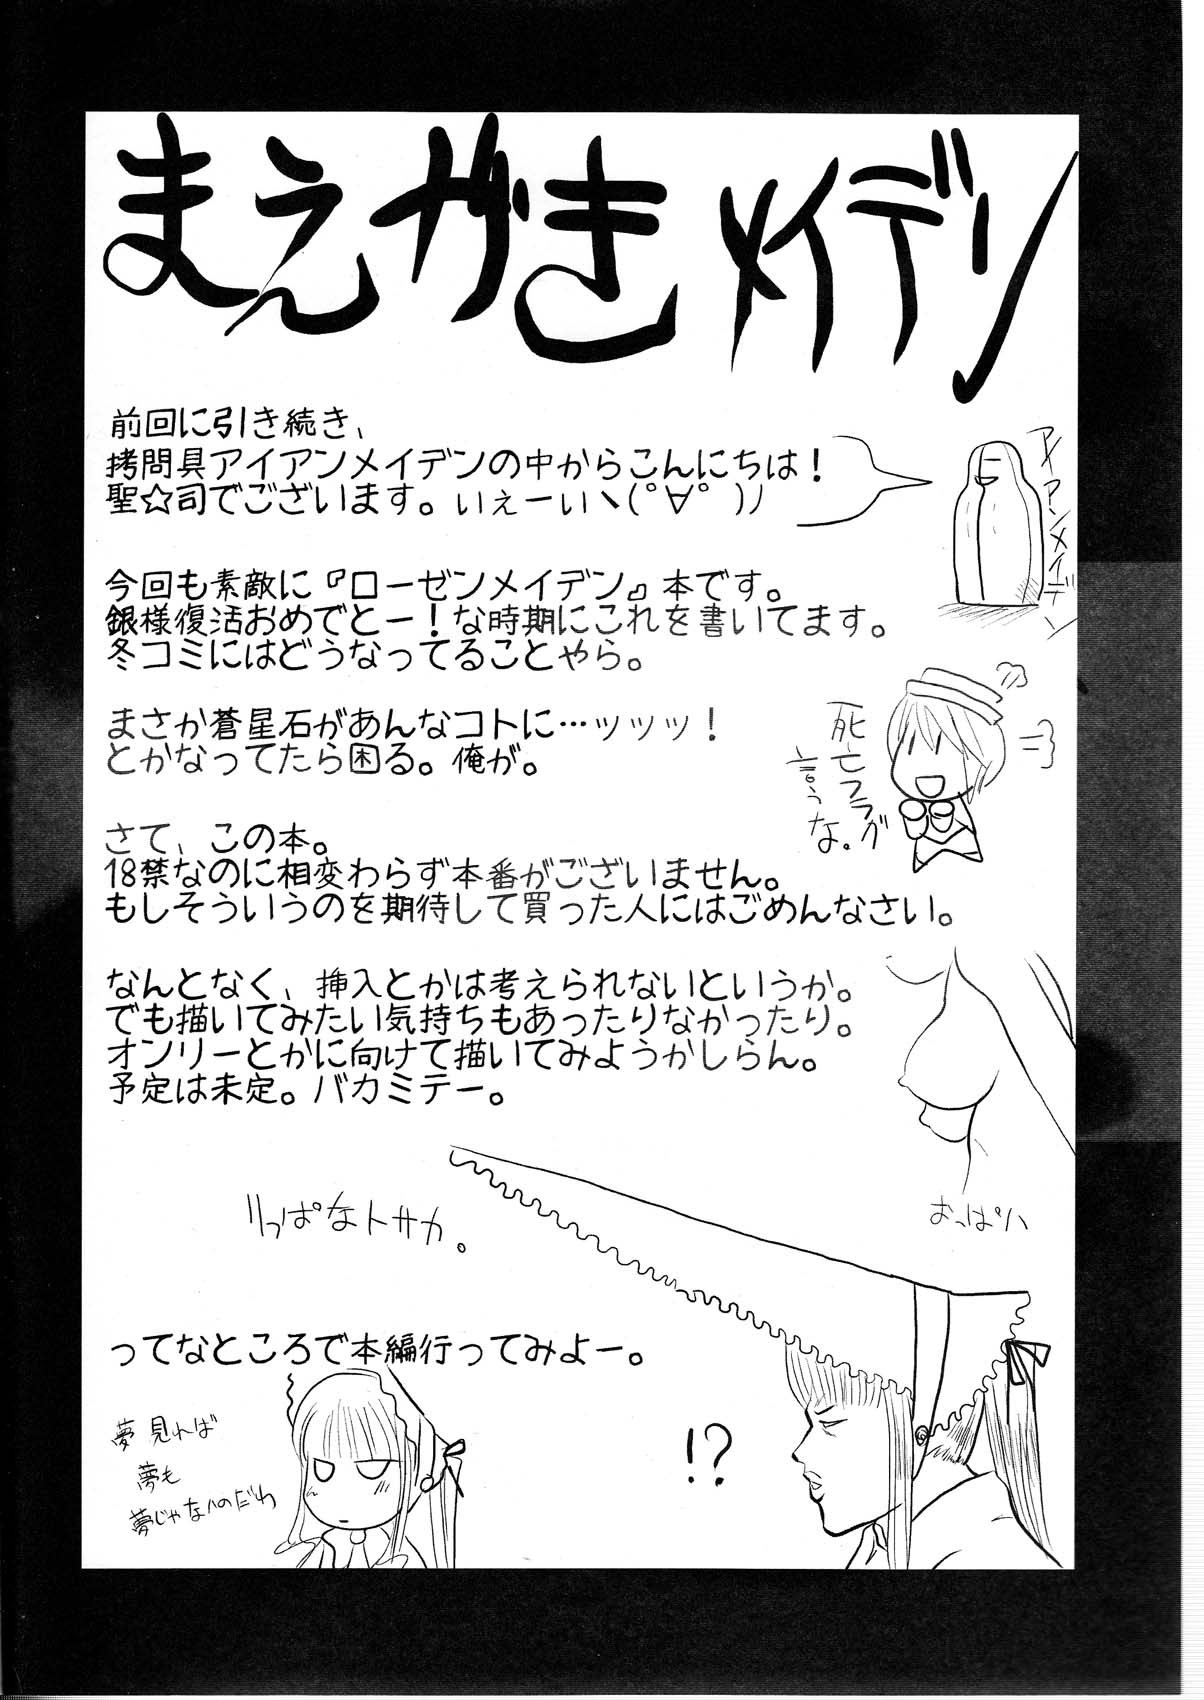 まえがきメイデン
前回に引き続き、
拷問具アイアンメイデンの中からこんにちは！
聖☆司でございます。いぇーいヽ(ﾟ∀ﾟ)ﾉ
アイアンメイデン
今回も素敵に『ローゼンメイデン』本です。
銀様復活おめでとー！な時期にこれを書いてます。
冬コミにはどうなってることやら。
まさか蒼星石があんなコトに…ッッッ！
とかなってたら困る。俺が。
死亡フラグ
言うな。
さて、この本。
18禁なのに相変わらず本番がございません。
もしそういうのを期待して買った人にはごめんなさい。
なんとなく、挿入とかは考えられないというか。
でも描いてみたい気持ちもあったりなかったり。
オンリーとかに向けて描いてみようかしらん。
予定は未定。バカミテー。
おっぱい
りっぱなトサカ。
ってなところで本編行ってみよー。
夢見れば
夢も
夢じゃないのだわ
!?